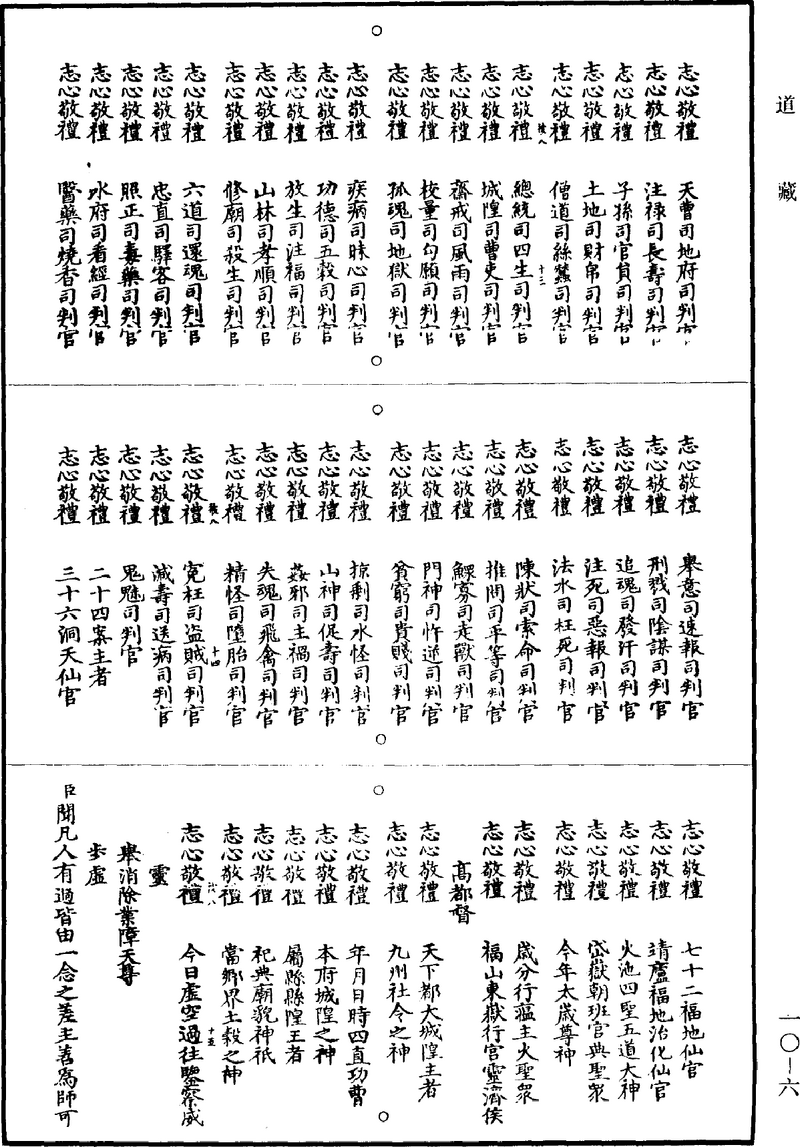 道藏
志心敬禮 天曹司地府司判官
志心敬禮 注祿司長壽司判官
志心敬禮 子孫司官員司判官
志心敬禮 土地司財帛司判官
志心敬禮 僧道司絲蠶司判官
十三
志心敬禮 總統司四生司判官
志心敬禮 城隍司曹吏司判官
志心敬禮 齋戒司風雨司判官
志心敬禮 校量司勾願司判官
志心敬禮 孤魂司地獄司判官
志心敬禮 疾病司昧心司判官
志心敬禮 功德司五穀司判官
志心敬禮 放生司注福司判官
志心敬禮 山林司孝順司判官
志心敬禮 修廟司殺生司判官
志心敬禮 六道司還魂司判官
志心敬禮 忠直司驛客司判官
志心敬禮 照正司毒藥司判官
志心敬禮 水府司看經司判官
志心敬禮 醫藥司燒香司判官
志心敬禮 舉意司速報司判官
志心敬禮 刑戮司陰謀司判官
志心敬禮 追魂司發汗司判官
志心敬禮 注死司惡報司判官
志心敬禮 法水司枉死司判官
志心敬禮 陳狀司索命司判官
志心敬禮 推問司平等司判官
志心敬禮 鰥寡司走獸司判官
志心敬禮 門神司忤逆司判官
志心敬禮 貧窮司貴賤司判官
志心敬禮 掠剩司水怪司判官
志心敬禮 山神司促壽司判官
志心敬禮 姦邪司主禍司判官
志心敬禮 失魂司飛禽司判官
志心敬禮 精怪司墮胎司判官
十四
志心敬禮 冤枉司盜賊司判官
志心敬禮 減壽司送病司判官
志心敬禮 鬼魅司判官
志心敬禮 二十四案主者
志心敬禮 三十六洞天仙官
志心敬禮 七十二福地仙官
志心敬禮 靖廬福地治化仙官
志心敬禮 火池四聖五道大神
志心敬禮 岱嶽朝班官典聖眾
志心敬禮 今年太歲尊神
志心敬禮 歲分行瘟主火聖眾
志心敬禮 福山東嶽行宮靈濟侯
高都督
志心敬禮 天下都大城隍主者
志心敬禮 九州社令之神
志心敬禮 年月日時四直功曹
志心敬禮 本府城隍之神
志心敬禮 屬縣縣隍王者
志心敬禮 祀典廟貌神祇
志心敬禮 當鄉界土穀之神
十五
志心敬禮 今日虛空過往鑒察威
靈
舉消除業障天尊
步虛
臣聞凡人有過皆由一念之差主善為師可
一〇-六